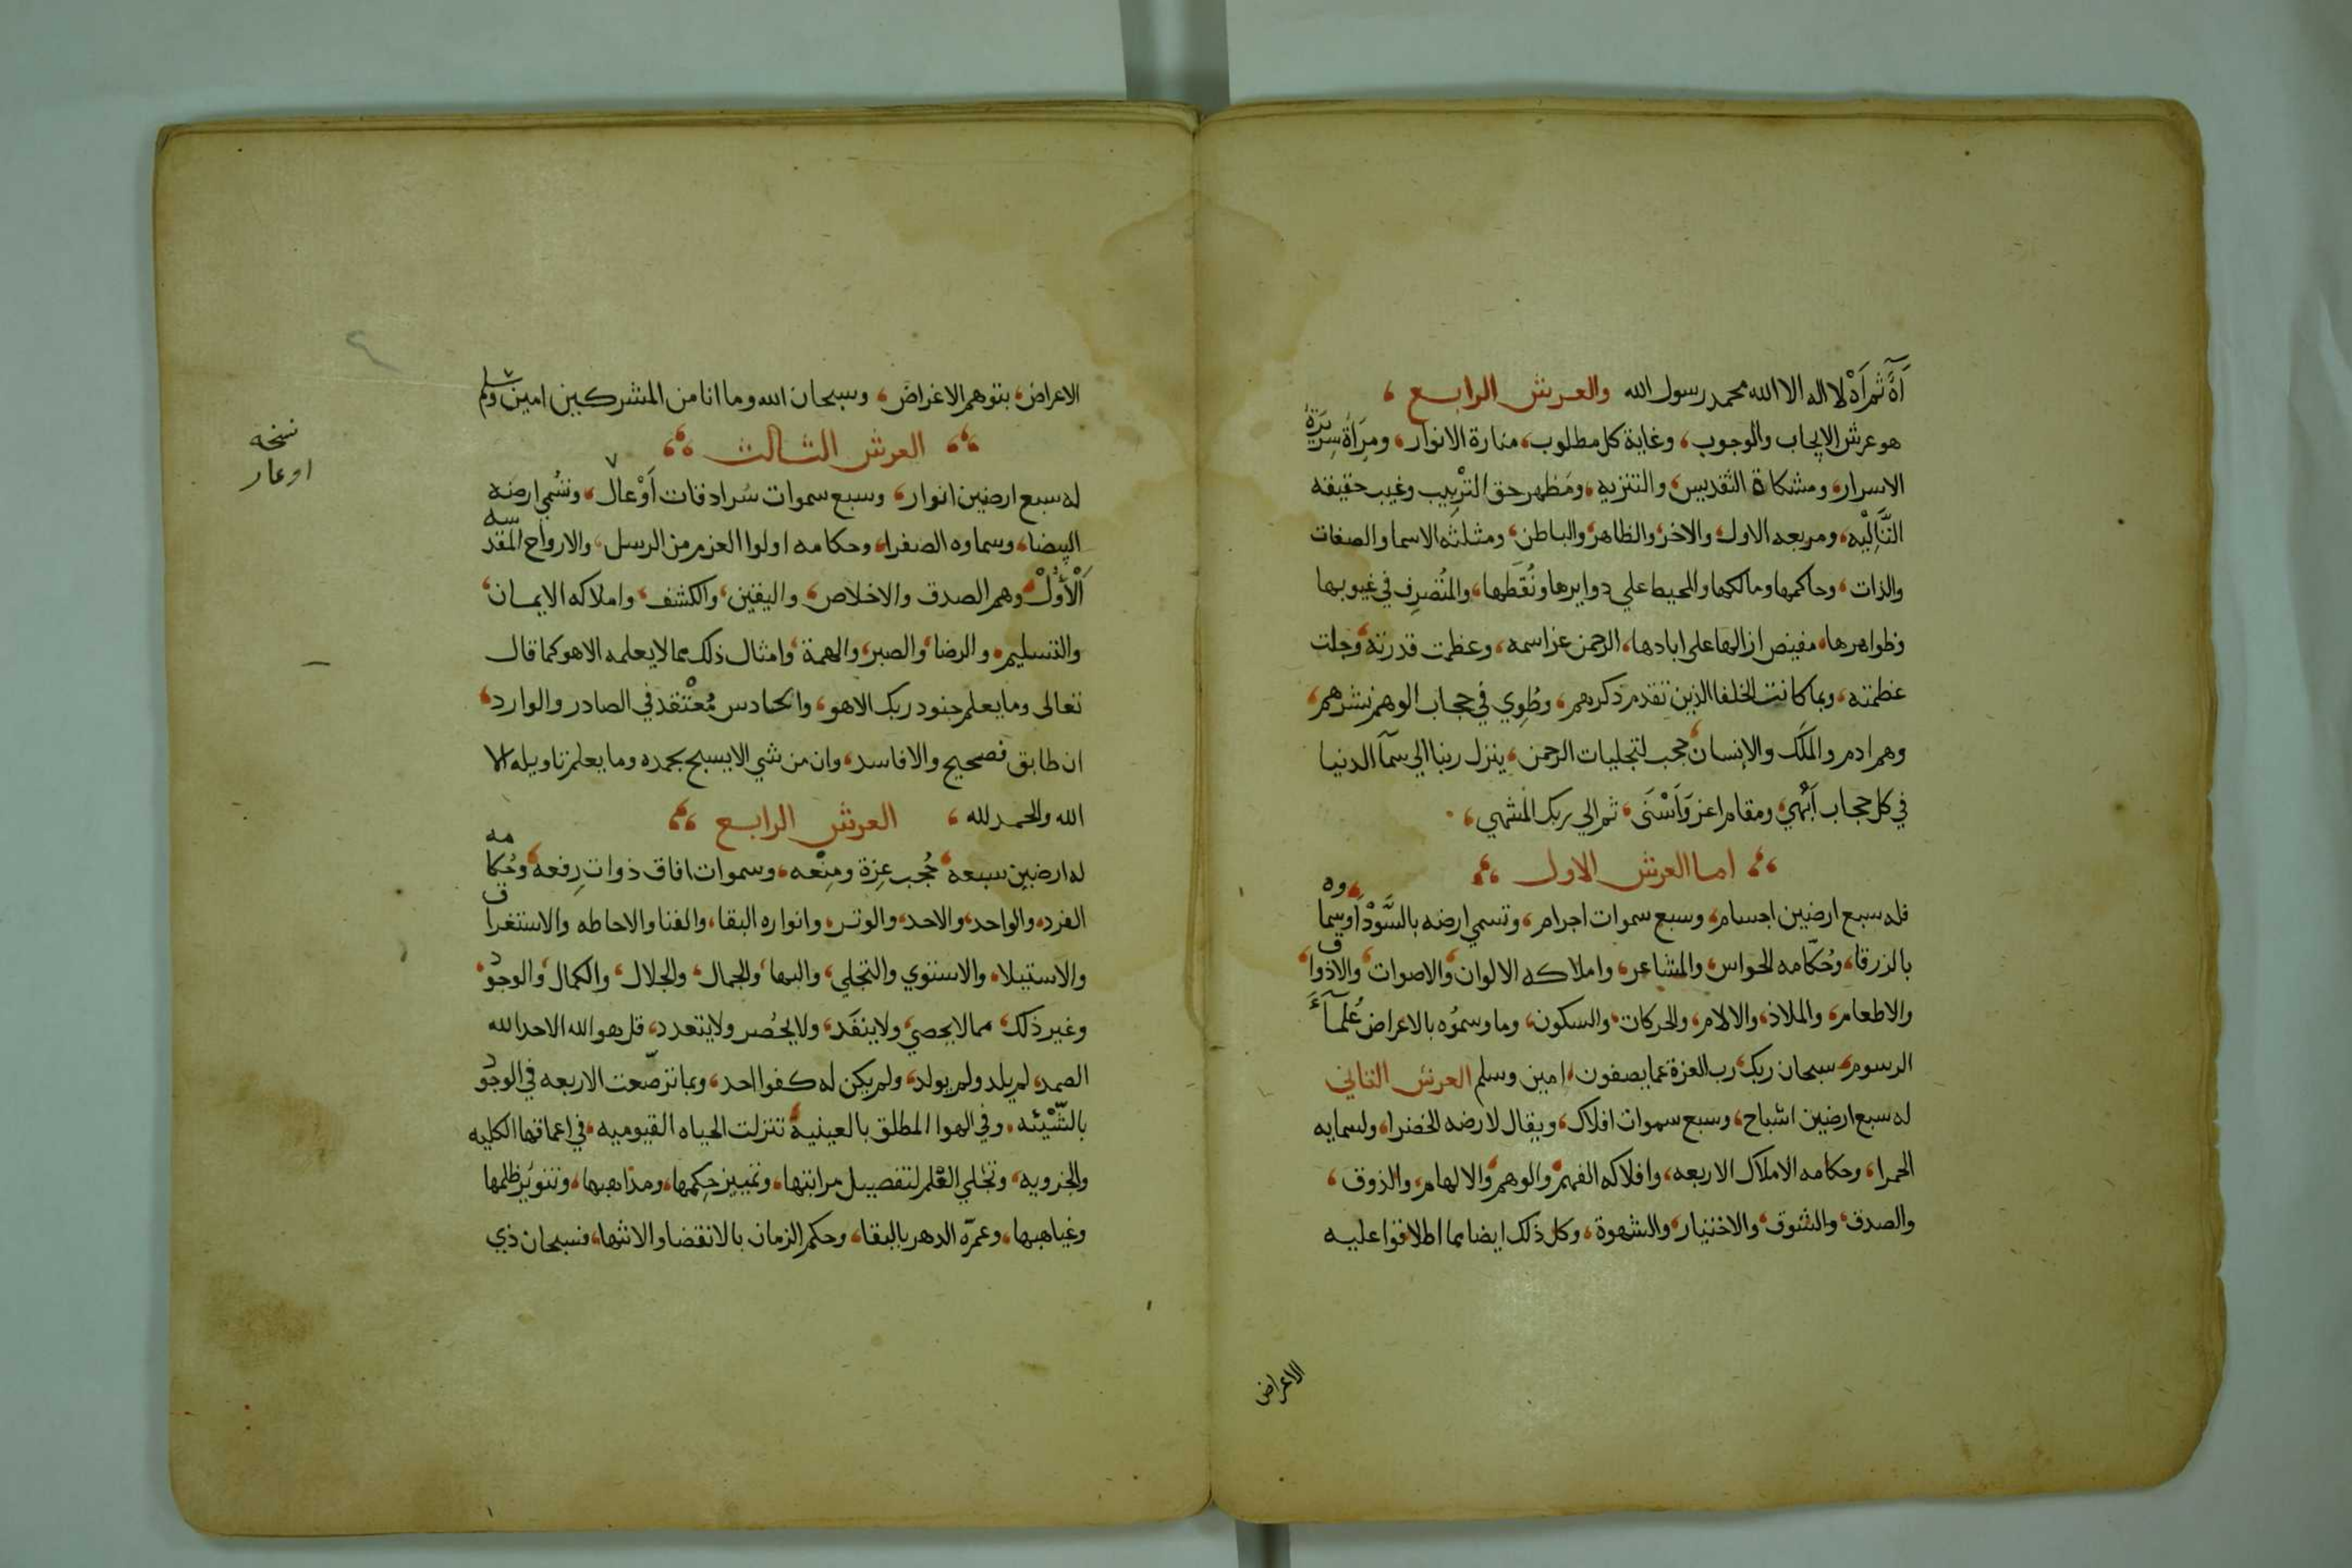 آهً ثم آهْ لا اله الا الله محمد رسول الله والعرش الرابع ،
هو عرش الايجاب والوجوب، وغاية كل مطلوب، منارة الانوار، ومرآة سريرة
الاسرار، ومشكاة التقديس، والتنزيه، ومظهر حق الترتيب وغيب حقيقه
التَّالِيْه، ومربعه الاول، والاخر، والظاهر، والباطن، ومثلثه الاسما والصفات
والذات، وحاكمها ومالكها والمحيط علي دوايرها ونُقَطها، والمُتصرِف في غيوبها
وظواهرها، مفيض ازالها على ابادها، الرحمن عز اسمه، وعظمت قدرته، وجلت
عظمته، وبما كانت الخلفا الذين تقدم ذكرهم، وطُوِي في حجاب الوهم نشرهم،
وهم ادم والملَك والانسان، حجب لتجليات الرحمن، ينزل ربنا الي سمآ الدنيا
في كل حجاب اَبْهي، ومقام اعز وَاَسْنَى، ثم الي ربك المنتهي،
اما العرش الاول
فله سبع ارضين اجسام، وسبع سموات اجرام، وتسمي ارضه بالسَّوْدا، وسماوه
بالزرقا، وحُكّامه الحواس، والمشاعر، واملاكه الالوان، والاصوات، والاذواق،
والاطعام، والملاذ، والالام، والحركات، والسكون، وما وسموُه بالاعراض عُلمآءَ
الرسوم، سبحان ربك، رب العزة عما يصفون، امين وسلم العرش الثاني
له سبع ارضين اشباح، وسبع سموات افلاك، ويقال لارضه الخضرا، ولسمايه
الحمرا، وحكامه الاملاك الاربعه، وافلاكه الفهم، والوهم، والالهام، والذوق،
والصدق، والشوق، والاختيار، والشهوة، وكل ذلك ايضا مما اطلاقوا عليه
الاعراض
الاعراض، بتوهم الاغراض، وسبحان الله وما انا من المشركين امين وسلم
العرش الثالث
له سبع ارضين انوار، وسبع سموات سُرادقات اَوْعال، وتسُمي ارضه
البيضا، وسماوه الصفرا، وحكامه اولوا العزم من الرسل، والارواح المقدسه
اْلأُوَلْ، وهم الصدق والاخلاص، واليقين، والكشف، واملاكه الايمان،
والتسليم، والرضا، والصبر، والهمة، وامثال ذلك مما لا يعلمه الا هو كما قال
تعالى وما يعلم جنود ربك الا هو، والحادس مُعْتقد في الصادر والوارد،
ان طابق فصحيح والا فاسد، وان من شي الا يسبح بحمده وما يعلم تاويله الا
الله والحمد لله ، العرش الرابع
له ارضين سبعه، حُجب عِزة ومنِعْه، وسموات افاق ذوات رِفعه، وحُكامه
الفرد، والواحد، والاحد، والوتر، وانواره البقا، والفنا والاحاطه والاستغراق
والاستيلا، والاستوي والتجلي، والبها، والجمال، والجلال، والكمال، والوجود،
وغير ذلك، مما لا يحصي، ولا ينفَد، ولا يحُصر ولا يتعدد، قل هو الله الاحد الله
الصمد، لم يلد ولم يولد، ولم يكن له كفوا احد، وبما ترصّعت الاربعه في الوجود
بالشَّيْئه، وفي الهوا المطلق بالعينية، تنزلت الحياه القيوميه، في اعماقها الكليه
والجزويه، وتجُلي القلم لتفصيل مراتبها، وتمييز حِكِمها، ومذاهبها، وتنويُر ظلمها
وغياهبها، وعمرّه الدهر بالبقا، وحكم الزمان بالانقضا والانتها، فسبحان ذي
نسخه
اوعار